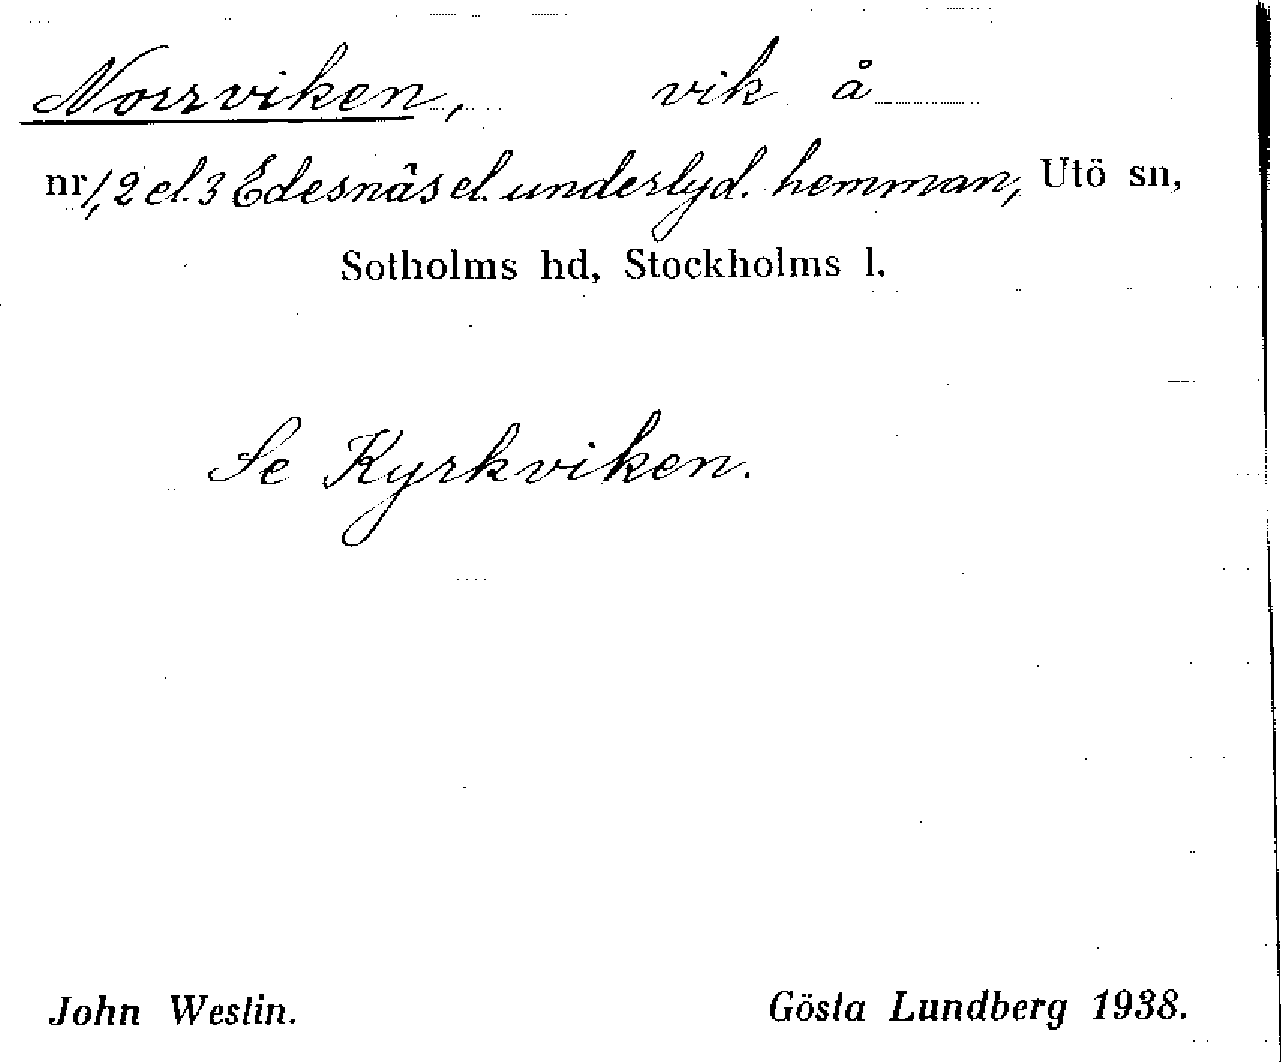 Norrviken, vik å
nr 1, 2 el. 3 Edesnäs el. underlyd. hemman, Utö sn,
Sotholms hd, Stockholms l.
Se Kyrkviken.
John Westin. Gösta Lundberg 1938.